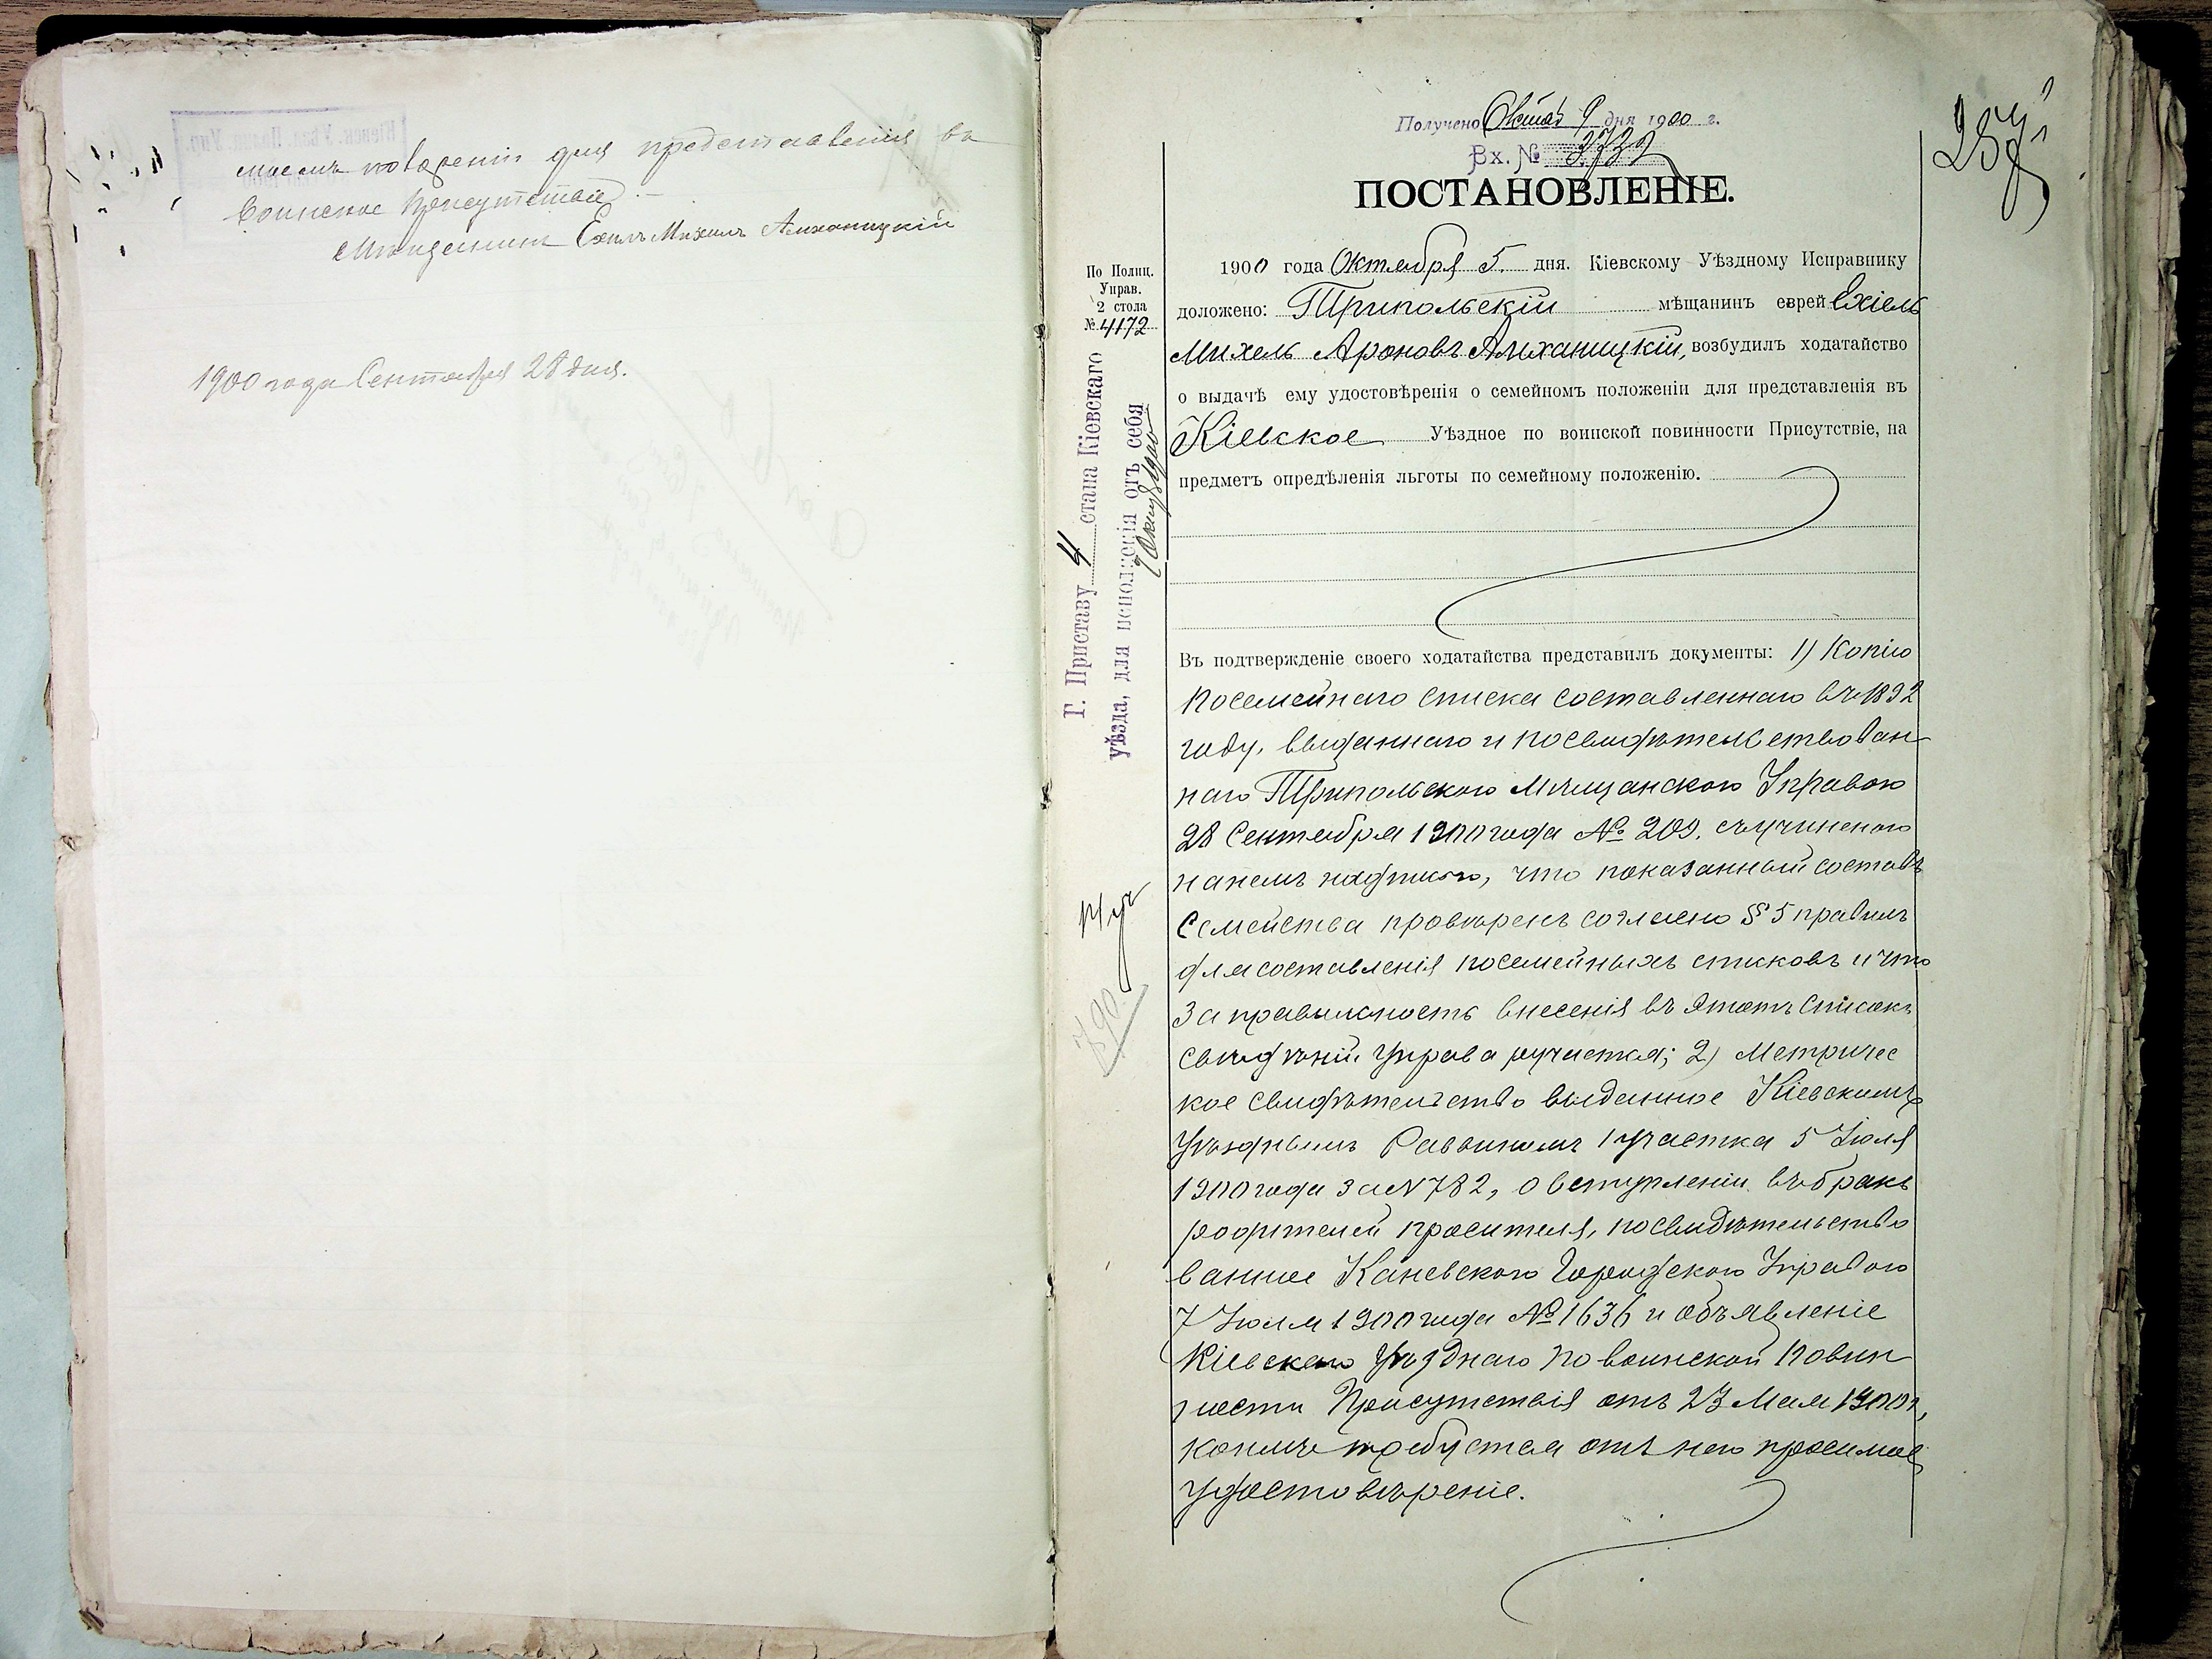 моемъ поведеніи для представленія въ
Воинское Присутствіе. –
Мѣщанинъ Ехиль Михель Алиханицкій
1900 года Сентября 28 дня.
Получено Октяб 9 дня 1900 г.
Вх. № 3732
ПОСТАНОВЛЕНІЕ.
По Полиц.
Управ.
2 стола
№ 4172
Г. Приставу 4 стана Кіевскаго
уѣзда, для исполненія отъ себя
1900 года Октября 5. дня. Кіевскому Уѣздному Исправнику
доложено: Трипольскій мѣщанинъ еврей Ехіель
Михель Ароновъ Алиханицкій, возбудилъ ходатайство
о выдачѣ ему удостовѣренія о семейномъ положеніи для представленія въ
Кіевское Уѣздное по воинской повинности Присутствіе, на
предметъ опредѣленія льготы по семейному положенію.
Въ подтвержденіе своего ходатайства представилъ документы: 1) Копію
посемейнаго списка составленнаго въ 1892
году, выданнаго и посвидѣтельствован
наго Трипольскою Мѣщанскою Управою
28 Сентября 1900 года № 209. съ учиненою
на немъ надписью, что показанный составъ
Семейства провѣренъ согласно § 5 правилъ
для составленія посемейныхъ списковъ и что
за правильность внесенія въ этотъ Списокъ
свѣдѣній Управа ручается; 2) Метричес
кое свидѣтельство выданное Кіевскимъ
Уѣзднымъ Раввиномъ 1 участка 5 Іюля
1900 года за N 782, о вступленіи въ бракъ
родителей просителя, посвидѣтельство
ванное Каневскою Городскою Управою
7 Іюля 1900 года № 1636 и объявленіе
Кіевскаго Уѣзднаго по воинской повин
ности Присутствія отъ 23 Мая 1900 г,
коимъ требуется отъ него просимое
удостовѣреніе.